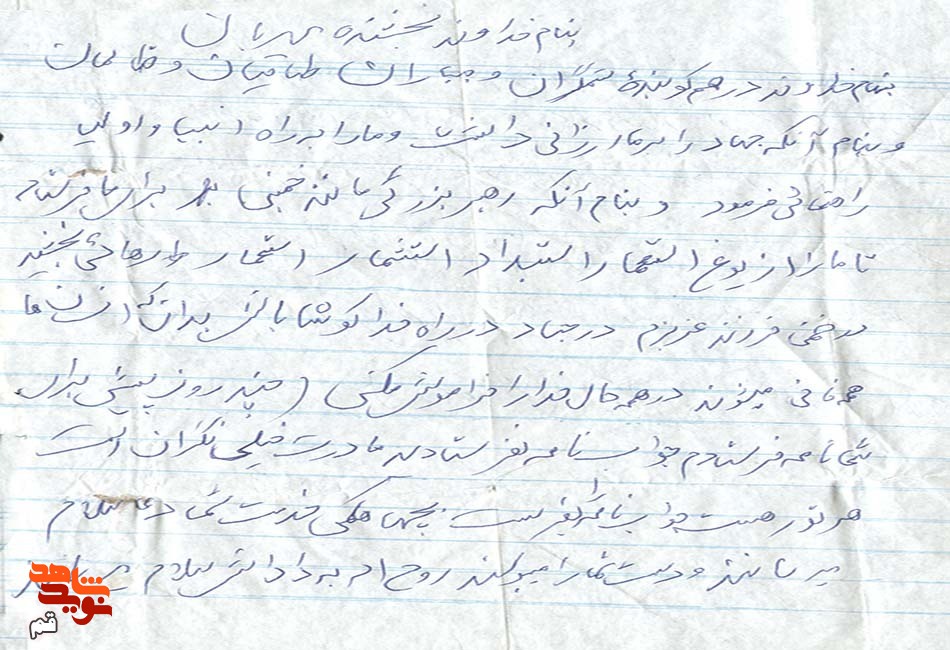 بنام خداوند بخشنده مهربان
بنام خداوند درهم کوبندۀ ستمگران و جباران طاقیان و ظالمان
و بنام آنکه جهاد را بر ما ارزانی داشت و ما را براه انبیا و اولیا
راهنمائی فرمود و بنام آنکه رهبر بزرگی مانند خمینی بهر برای ما فرستاد
تا ما را از یوغ استعمار استبداد استثمار استحمار رهائی بخشید
در ضمن فرزند عزیزم در جهاد در راه خدا کوشا باش بدان که انسان ها
همه فانی میشوند در همه حال خدا را فراموش مکنی (چند روز پیش برای
شما نامه فرستادم جواب نامه نفرستادید مادرت خیلی نگران است
هر تور هست جواب نامه بفرست بچهها همگی خدمت شما دعا سلام
میرسانند و دست شما را میبوسند روح اله به داداش سلام میرساند
نوید شاهد
قم